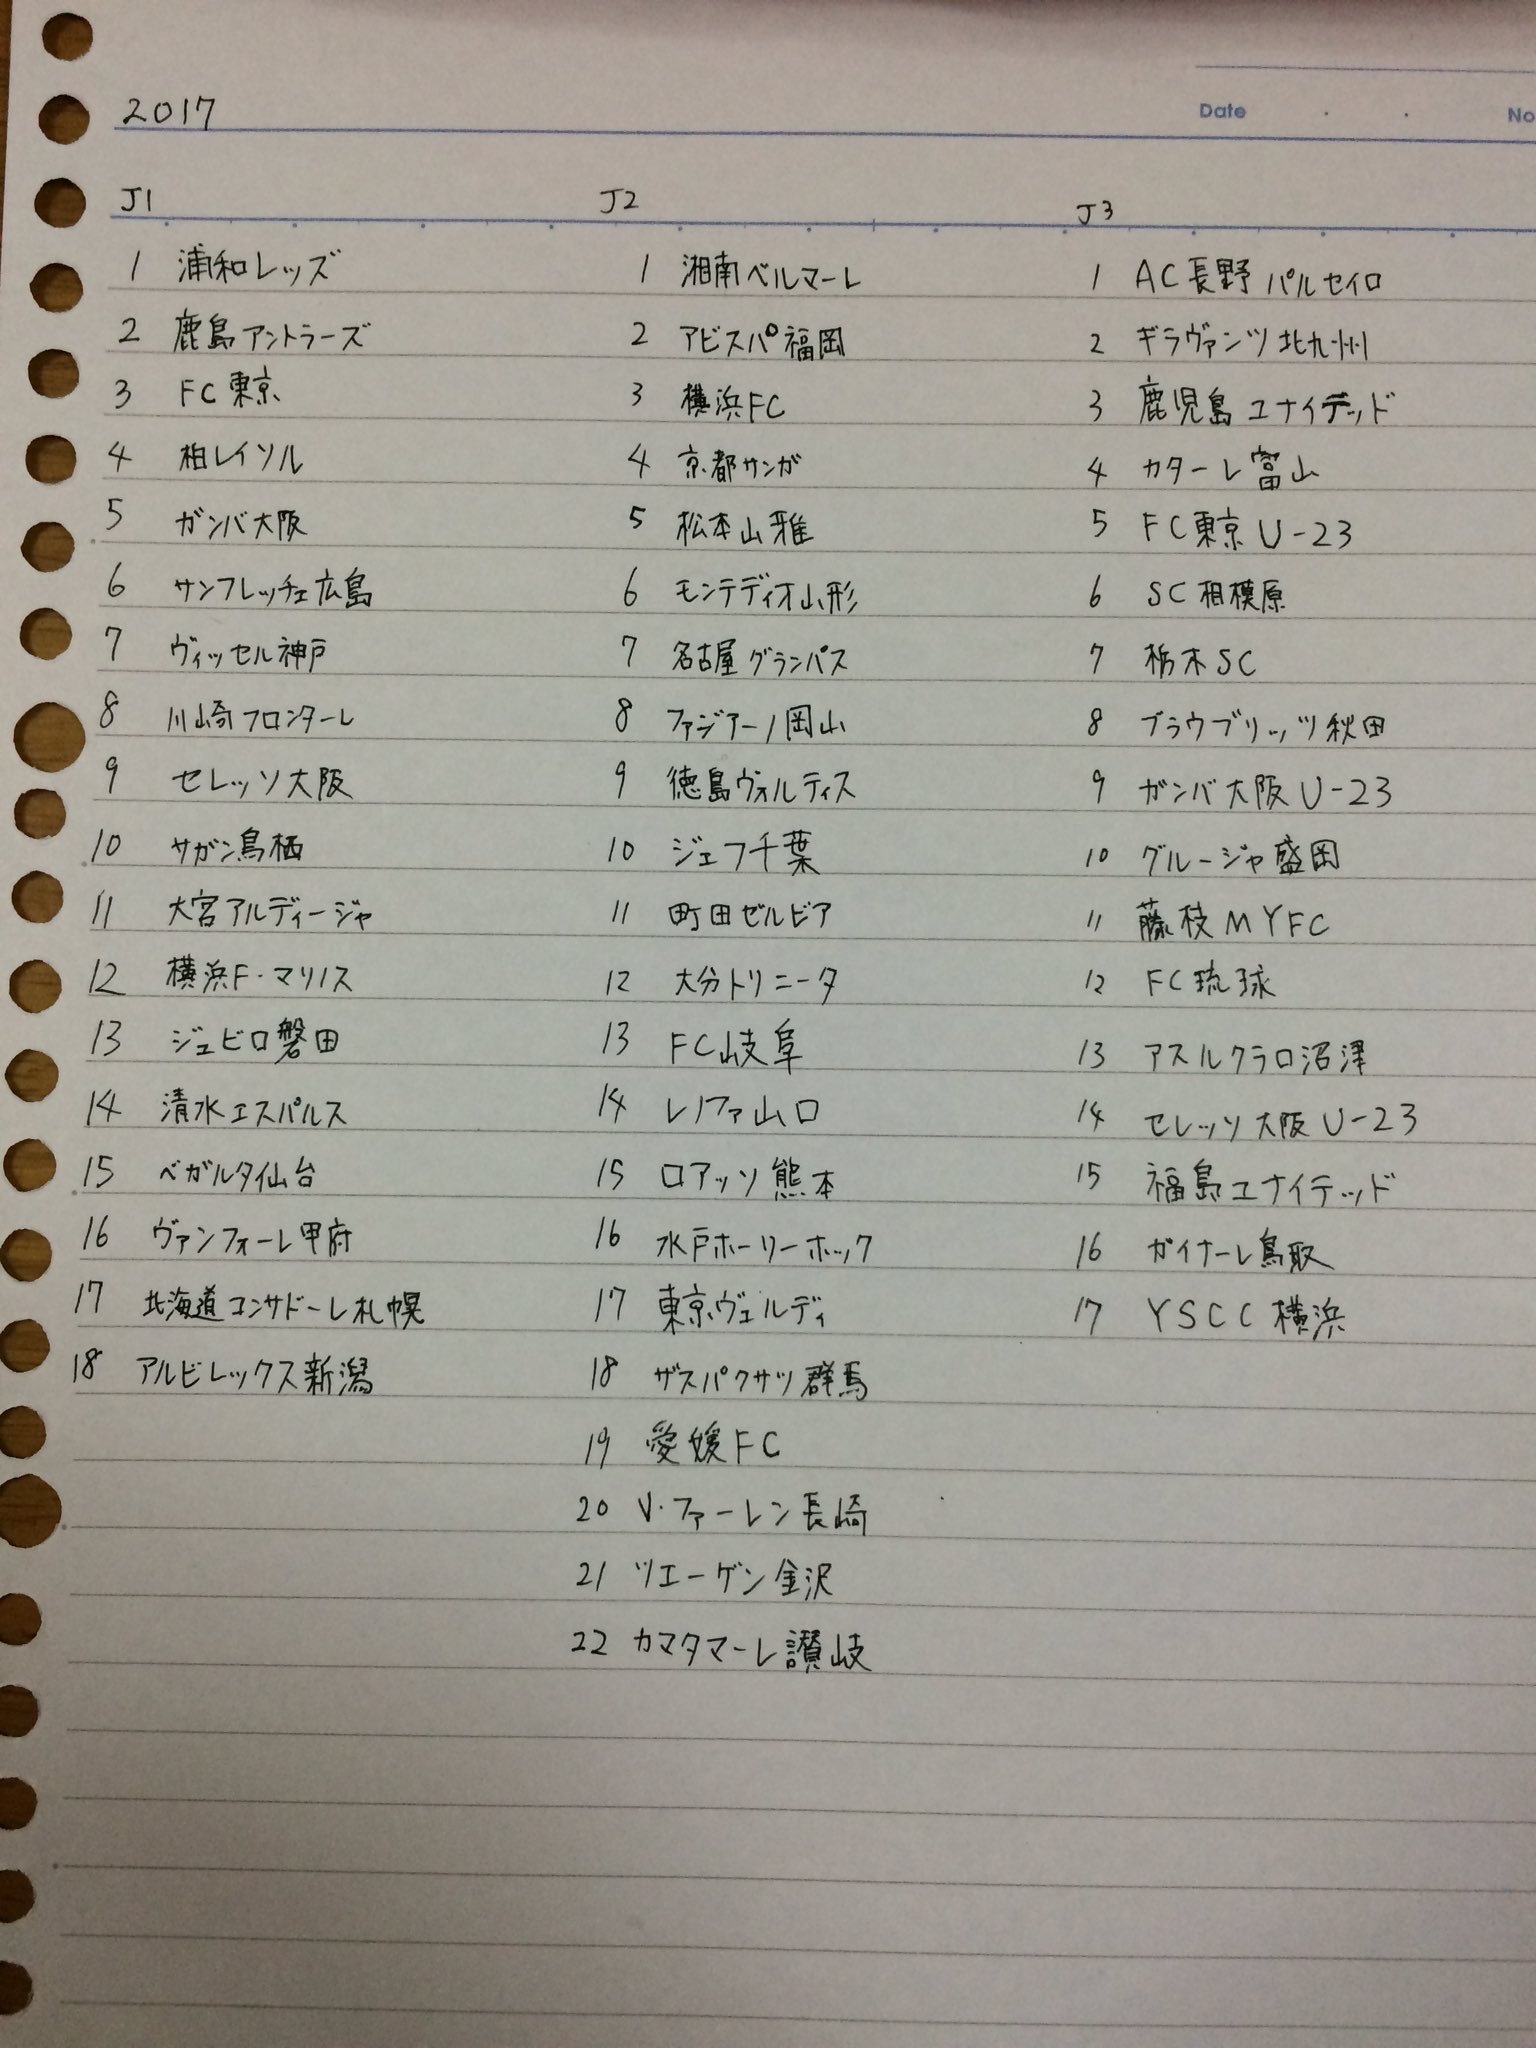 Date . . No
2017
J1
1 浦和レッズ
2 鹿島アントラーズ
3 FC東京
4 柏レイソル
5 ガンバ大阪
6 サンフレッチェ広島
7 ヴィッセル神戸
8 川崎フロンターレ
9 セレッソ大阪
10 サガン鳥栖
11 大宮アルディージャ
12 横浜F・マリノス
13 ジュビロ磐田
14 清水エスパルス
15 ベガルタ仙台
16 ヴァンフォーレ甲府
17 北海道コンサドーレ札幌
18 アルビレックス新潟
J2
1 湘南ベルマーレ
2 アビスパ福岡
3 横浜FC
4 京都サンガ
5 松本山雅
6 モンテディオ山形
7 名古屋グランパス
8 ファジアーノ岡山
9 徳島ヴォルティス
10 ジェフ千葉
11 町田ゼルビア
12 大分トリニータ
13 FC岐阜
14 レノファ山口
15 ロアッソ熊本
16 水戸ホーリーホック
17 東京ヴェルディ
18 ザスパクサツ群馬
19 愛媛FC
20 V・ファーレン長崎
21 ツエーゲン金沢
22 カマタマーレ讃岐
J3
1 AC長野パルセイロ
2 ギラヴァンツ北九州
3 鹿児島ユナイテッド
4 カターレ富山
5 FC東京U-23
6 SC相模原
7 栃木SC
8 ブラウブリッツ秋田
9 ガンバ大阪U-23
10 グルージャ盛岡
11 藤枝MYFC
12 FC琉球
13 アスルクラロ沼津
14 セレッソ大阪U-23
15 福島ユナイテッド
16 ガイナーレ鳥取
17 YSCC横浜